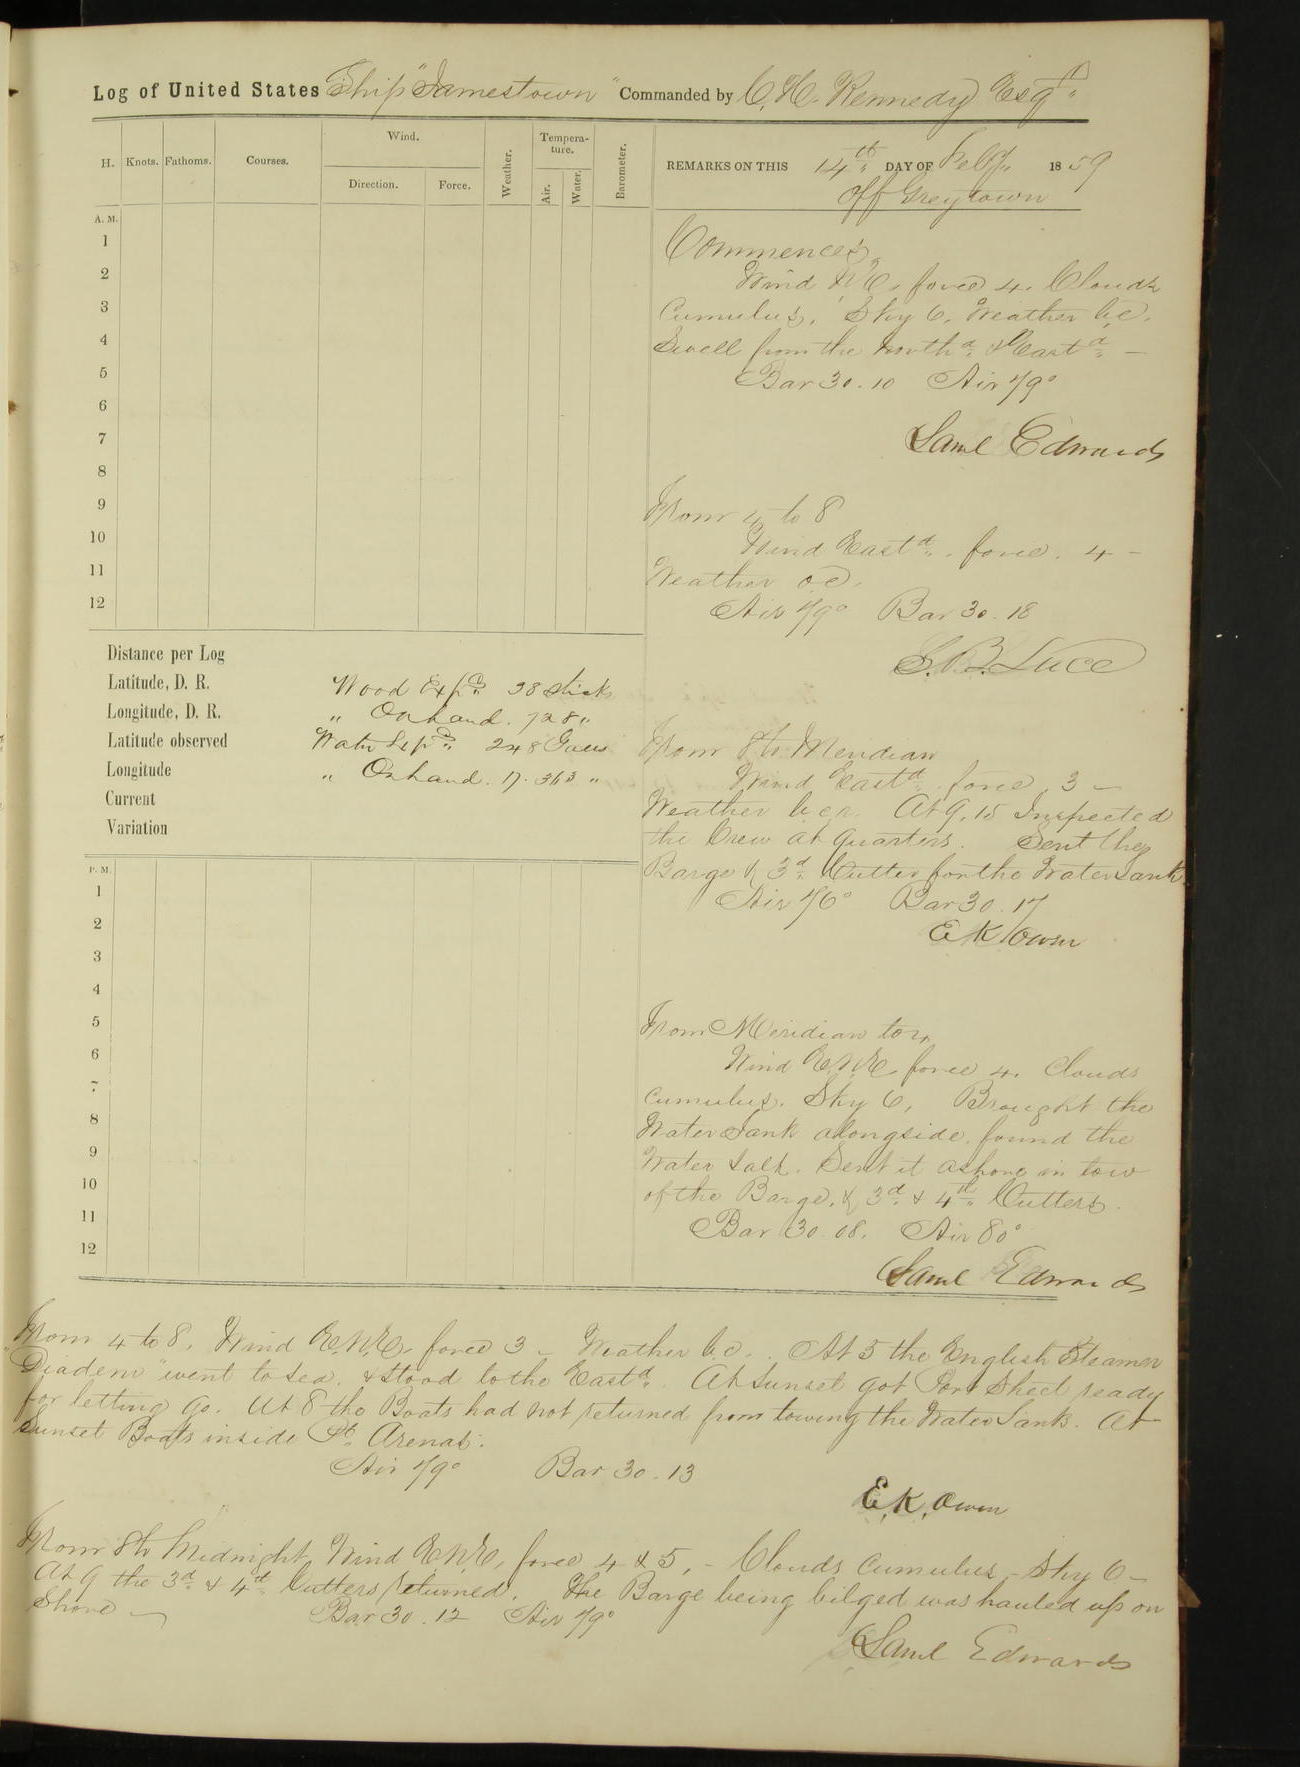 Log of United States Ship "Jamestown" Commanded by C. H. Kennedy Esqr.
H. Knots. Fathoms. Courses. Wind. Direction. Force. Weather. Tempera-ture. Air. Water. Barometer.
REMARKS ON THIS 14th DAY OF Feby. 1859
off Greytown
A. M.
1
2
3
4
5
6
7
8
9
10
11
12
Commences.
Wind N.E. force 4. Clouds
Cumulus. Sky 6. Weather b.c.
Swell from the northd. & Eastd. —
Bar 30.10 Air 79°
Saml Edwards
From 4 to 8
Wind Eastd. force. 4 —
Weather o.c.
Air 79° Bar 30.18
S. B. Luce
Distance per Log
Latitude, D. R.
Longitude, D. R.
Latitude observed
Longitude
Current
Variation
Wood Expd. 38 sticks
" On hand. 728 "
Water Expd. 248 Galls
" On hand. 17.363 "
From 8 to Meridian
Wind Eastd. force. 3 —
Weather b.c.r. At 9.15 Inspected
the Crew at Quarters. Sent the
Barge & 3d. Cutter for the Water Tank
Air 76° Bar 30.17
E K Owen
P. M.
1
2
3
4
5
6
7
8
9
10
11
12
From Meridian to 4
Wind E.N.E. force 4. Clouds
Cumulus. Sky 6. Brought the
Water Tank alongside. found the
Water Salt. Sent it ashore in tow
of the Barge. & 3d. & 4th. Cutters.
Bar 30.08. Air 80°
Saml Edwards
From 4 to 8. Wind E.N.E. force 3 — Weather b.c. At 5 the English Steamer
"Diadem" went to sea. & stood to the Eastd. At sunset got Port Sheet ready
for letting go. At 8 the Boats had not returned from towing the Water Tank. At
Sunset Boats inside Pt. Arenas.
Air 79° Bar 30.13
E. K. Owen
From 8 to Midnight Wind E.N.E. force 4 & 5. — Clouds Cumulus — Sky 6 —
At 9 the 3d. & 4th. Cutters returned. The Barge being bilged was hauled up on
Shore — Bar 30.12 Air 79°
Saml Edwards